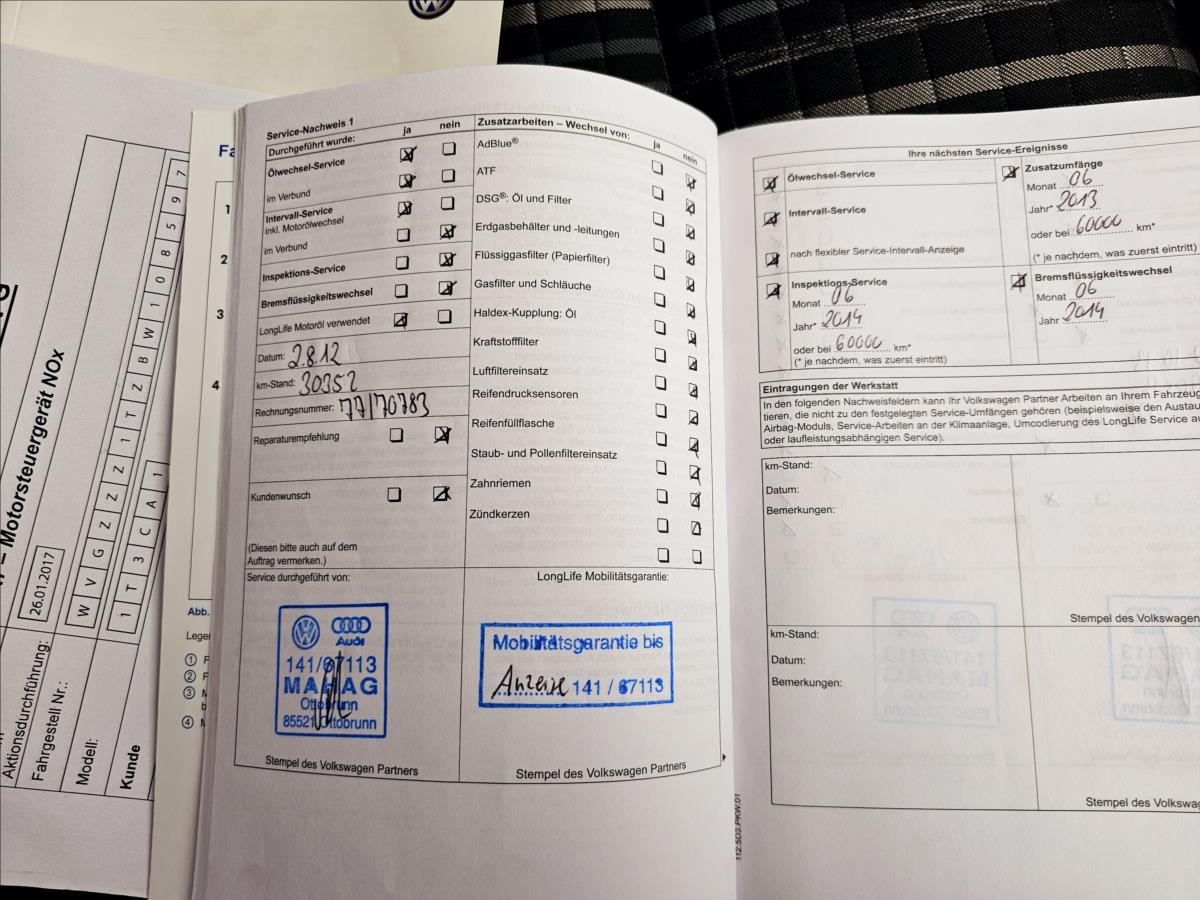 – Motorsteuergerät NOx
Aktionsdurchführung: 26.01.2017
Fahrgestell Nr.: W V G Z Z Z 1 T Z B W 1 0 8 5 9 7
Modell: 1 T 3 C A 1
Kunde
Fa
1
2
3
4
Abb.
Leger
① F
② F
③ M
b
④ M
Service-Nachweis 1
Durchgeführt wurde: ja nein
Ölwechsel-Service
im Verbund
Intervall-Service
inkl. Motorölwechsel
im Verbund
Inspektions-Service
Bremsflüssigkeitswechsel
LongLife Motoröl verwendet
Datum: 2.8.12
km-Stand: 30352
Rechnungsnummer: 77/70783
Reparaturempfehlung
Kundenwunsch
(Diesen bitte auch auf dem
Auftrag vermerken.)
Zusatzarbeiten – Wechsel von: ja nein
AdBlue®
ATF
DSG®: Öl und Filter
Erdgasbehälter und -leitungen
Flüssiggasfilter (Papierfilter)
Gasfilter und Schläuche
Haldex-Kupplung: Öl
Kraftstofffilter
Luftfiltereinsatz
Reifendrucksensoren
Reifenfüllflasche
Staub- und Pollenfiltereinsatz
Zahnriemen
Zündkerzen
Service durchgeführt von:
Audi
141/67113
MAHAG
Ottobrunn
85521 Ottobrunn
Stempel des Volkswagen Partners
LongLife Mobilitätsgarantie:
Mobilitätsgarantie bis
Anzeige 141 / 67113
Stempel des Volkswagen Partners
112.5D3.PKW.01
Ihre nächsten Service-Ereignisse
Ölwechsel-Service
Intervall-Service
nach flexibler Service-Intervall-Anzeige
Inspektions-Service
Monat 06
Jahr* 2014
oder bei 60000 km*
(* je nachdem, was zuerst eintritt)
Zusatzumfänge
Monat 06
Jahr* 2013
oder bei 60000 km*
(* je nachdem, was zuerst eintritt)
Bremsflüssigkeitswechsel
Monat 06
Jahr 2014
Eintragungen der Werkstatt
In den folgenden Nachweisfeldern kann Ihr Volkswagen Partner Arbeiten an Ihrem Fahrzeug
tieren, die nicht zu den festgelegten Service-Umfängen gehören (beispielsweise den Austau
Airbag-Moduls, Service-Arbeiten an der Klimaanlage, Umcodierung des LongLife Service au
oder laufleistungsabhängigen Service).
km-Stand:
Datum:
Bemerkungen:
Stempel des Volkswagen
km-Stand:
Datum:
Bemerkungen:
Stempel des Volkswa